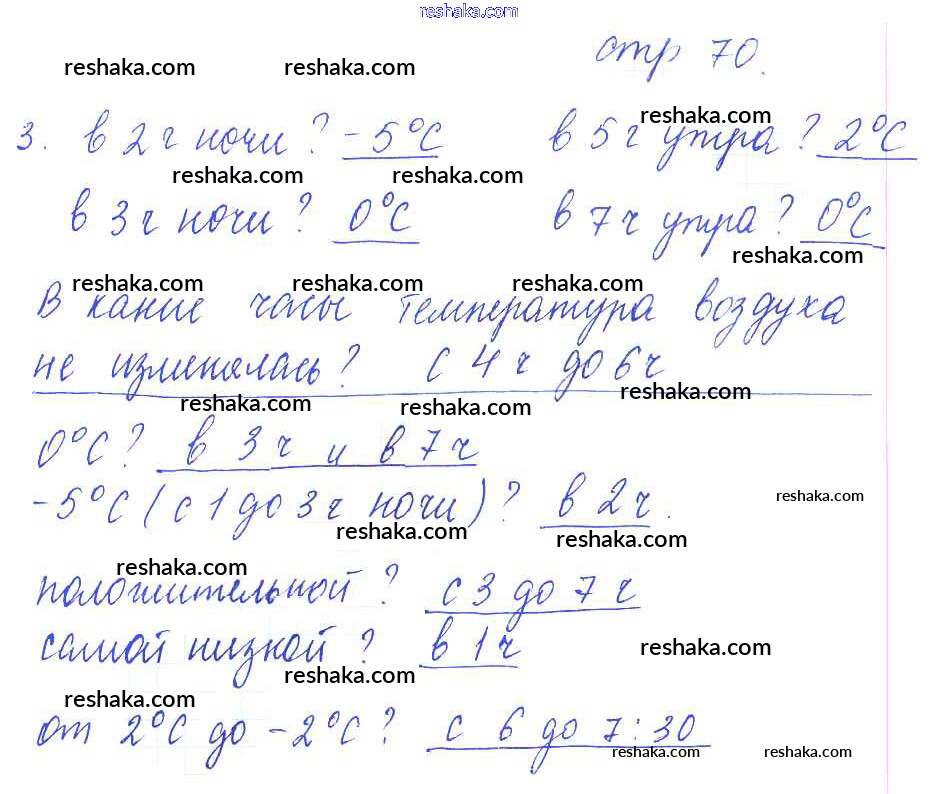 reshaka.com
стр 70.
reshaka.com reshaka.com
reshaka.com
3. в 2 ч ночи? -5°С в 5 ч утра? 2°С
reshaka.com reshaka.com
в 3 ч ночи? 0°С в 7 ч утра? 0°С
reshaka.com
reshaka.com reshaka.com reshaka.com
В какие часы температура воздуха
не изменялась? с 4 ч до 6 ч
reshaka.com
reshaka.com reshaka.com
0°С? в 3 ч и в 7 ч
-5°С (с 1 до 3 ч ночи)? в 2 ч.
reshaka.com
reshaka.com reshaka.com
reshaka.com
положительной? с 3 до 7 ч
самой низкой? в 1 ч
reshaka.com
reshaka.com
reshaka.com
от 2°С до -2°С? с 6 до 7:30
reshaka.com reshaka.com